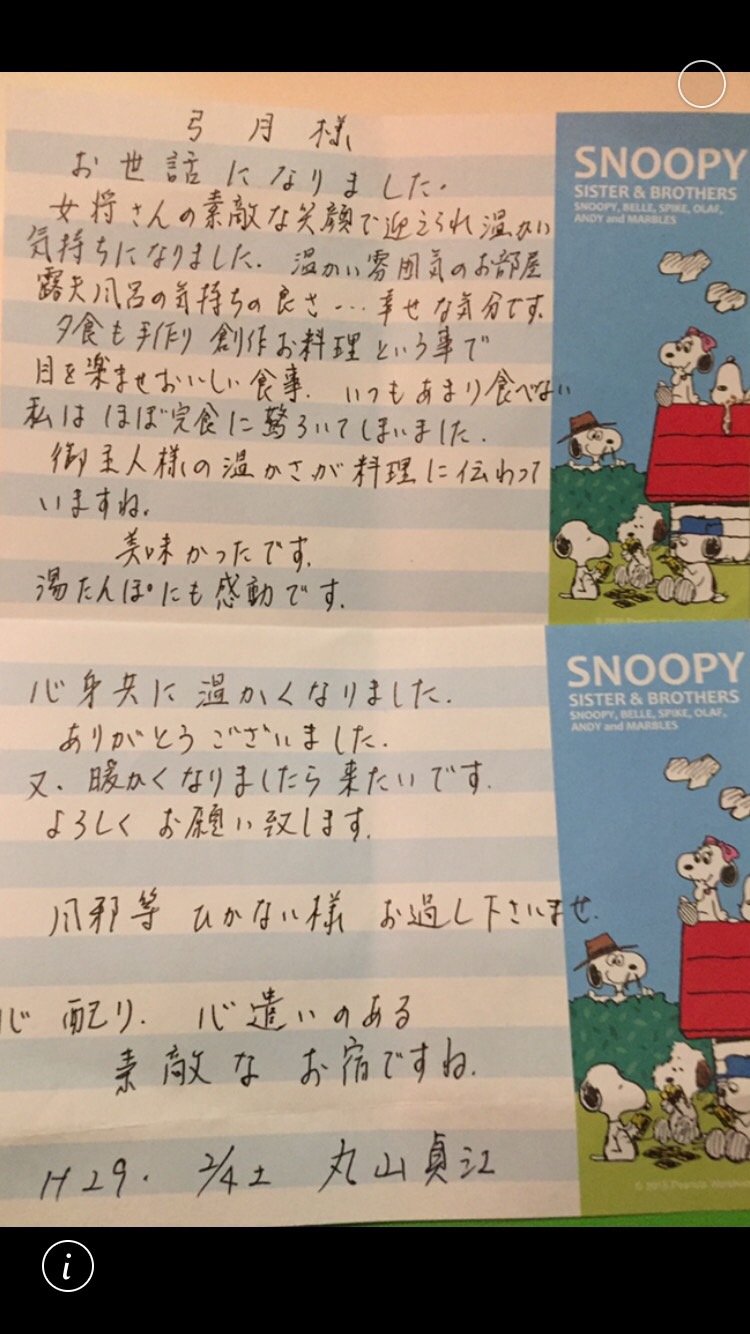 弓月様
お世話になりました.
女将さんの素敵な笑顔で迎えられ温かい
気持ちになりました. 温かい雰囲気のお部屋
露天風呂の気持ちの良さ…幸せな気分です.
夕食も手作り 創作お料理という事で
目を楽ませおいしい食事. いつもあまり食べない
私はほぼ完食に驚ろいてしまいました.
御主人様の温かさが料理に伝わって
いますね.
美味かったです.
湯たんぽにも感動です.
SNOOPY
SISTER & BROTHERS
SNOOPY, BELLE, SPIKE, OLAF,
ANDY and MARBLES
心身共に温かくなりました.
ありがとうございました.
又. 暖かくなりましたら来たいです.
よろしくお願い致します.
風邪等ひかない様 お過し下さいませ.
心配り. 心遣いのある
素敵なお宿ですね.
H29. 2/4土 丸山貞江
SNOOPY
SISTER & BROTHERS
SNOOPY, BELLE, SPIKE, OLAF,
ANDY and MARBLES